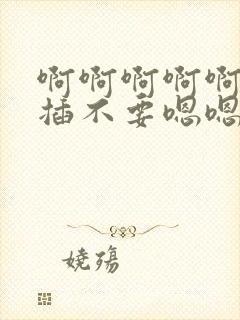 啊啊啊啊啊
插不要嗯嗯
娆殇